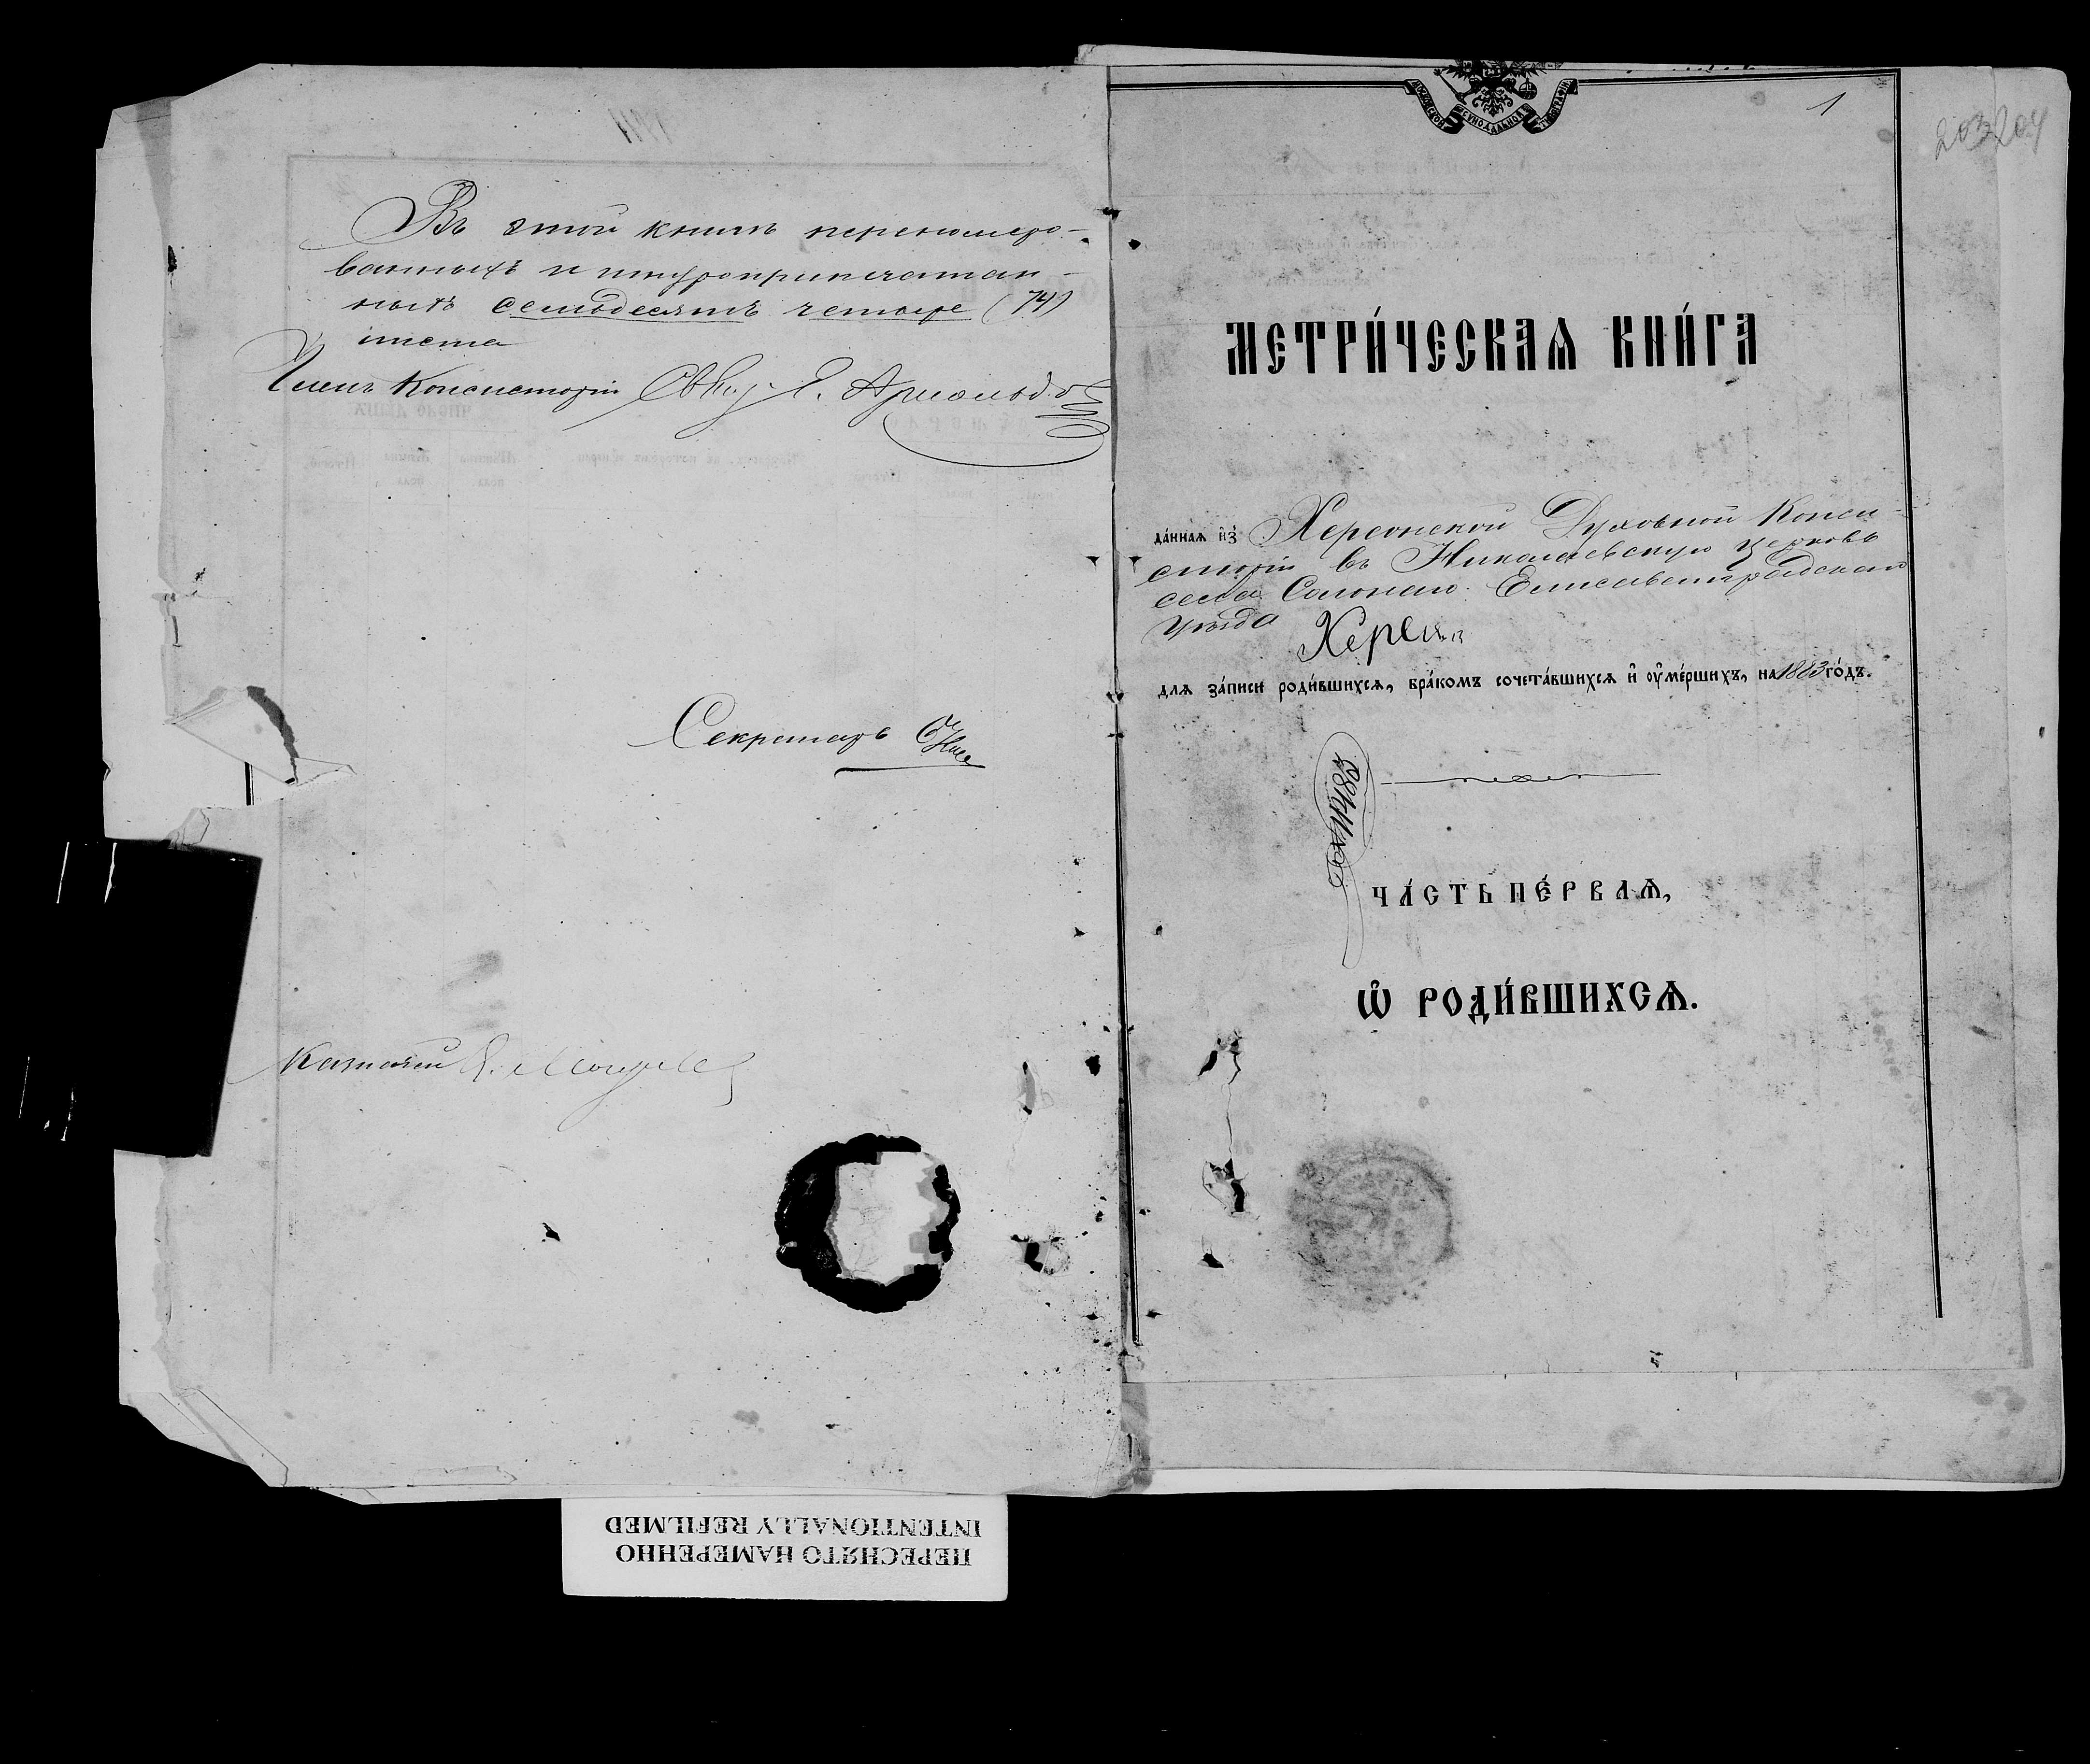 Въ этой книгѣ перенумеро-
ванныхъ и шнуроприпечатан-
ныхъ семьдесятъ четыре (74)
листа
Членъ Консисторіи Свящ. Е. Арнольдовъ
Секретарь
Казначей
МОСКОВСКОЙ СѴНОДАЛЬНОЙ ТѴПОГРАФІИ
1
203 204
МЕТРИ́ЧЕСКАѦ КНИ́ГА
да́ннаѧ и҆з̾ Херсонской Духовной Конси-
сторіи въ Николаевскую церковь
села Солонаго Елисаветградскаго
уѣзда
Херсон
длѧ за́писи роди́вшихсѧ, бра́комъ сочета́вшихсѧ и҆ ᲂу҆ме́ршихъ, на 1883 го́дъ.
ЧА́СТЬ ПЕ́РВАѦ,
Ѡ҆ РОДИ́ВШИХСѦ.
ПЕРЕСНЯТО НАМЕРЕННО
INTENTIONALLY REFILMED